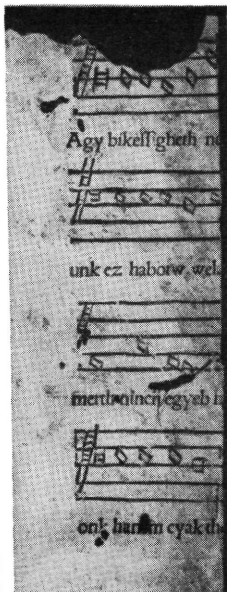 Agy bikess gheth ne
unk ez haborw wel
merth nincn egyeb h
onk hanem cyak the